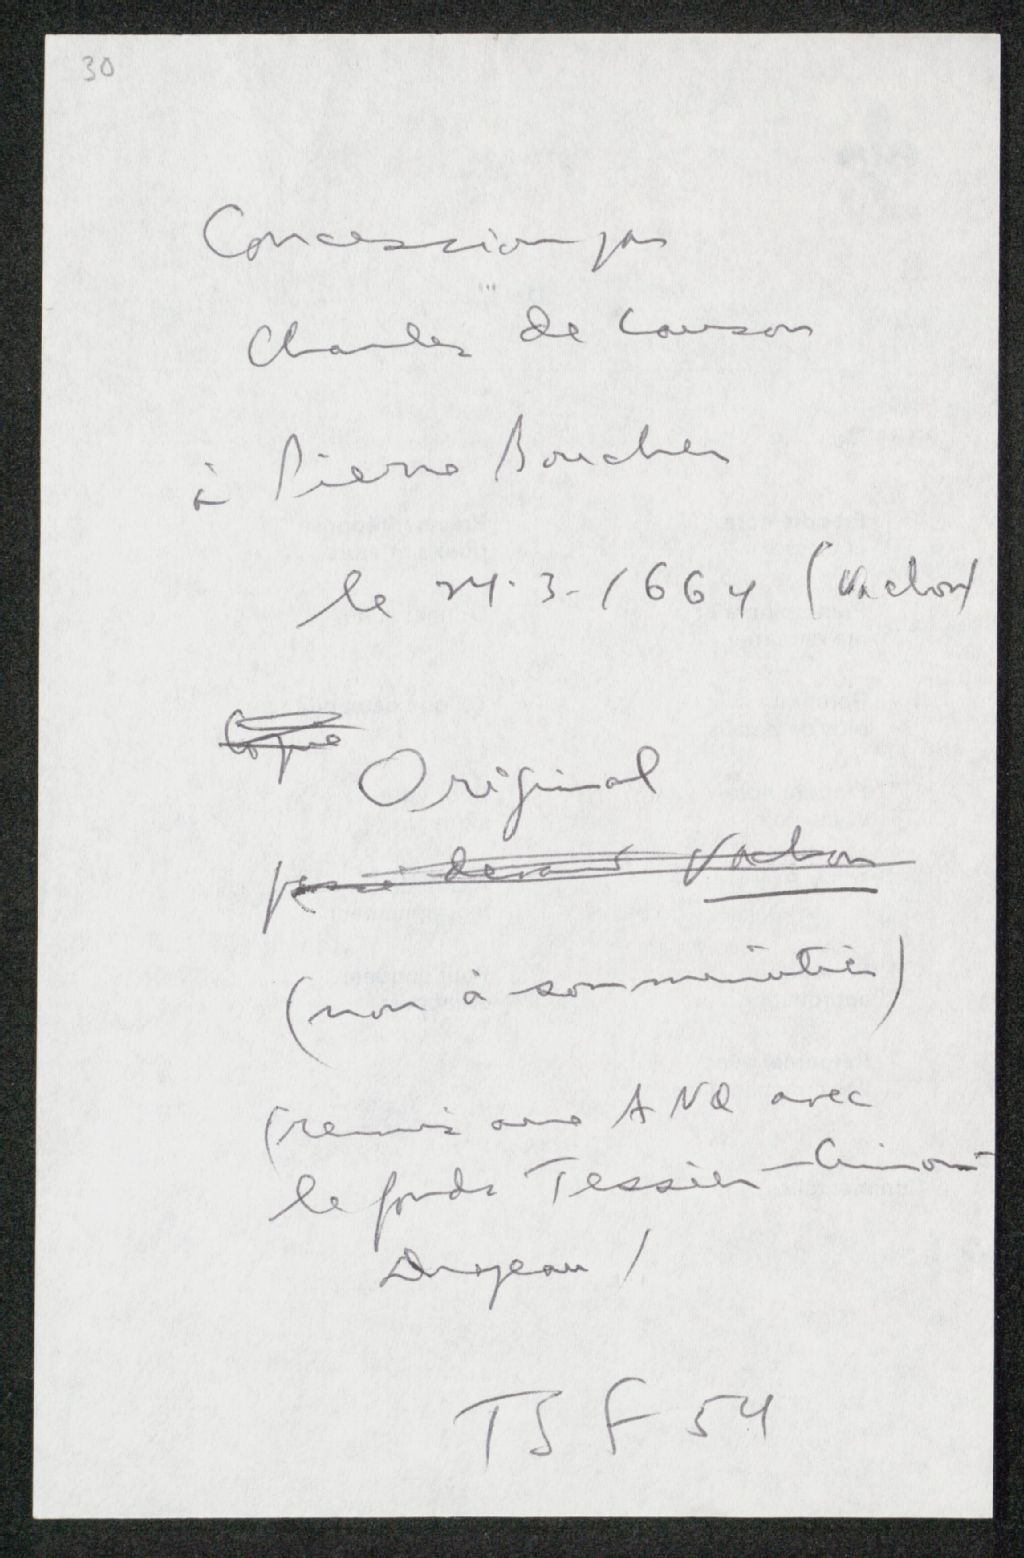 30
Concession par
Charles de Lauson
à Pierre Boucher
le 24.3-1664 (Vachon)
Copie
Original
passé devant Vachon
(non à son minutier)
(remis aux ANQ avec
le fonds Tessier-
Drapeau)
TSF 54